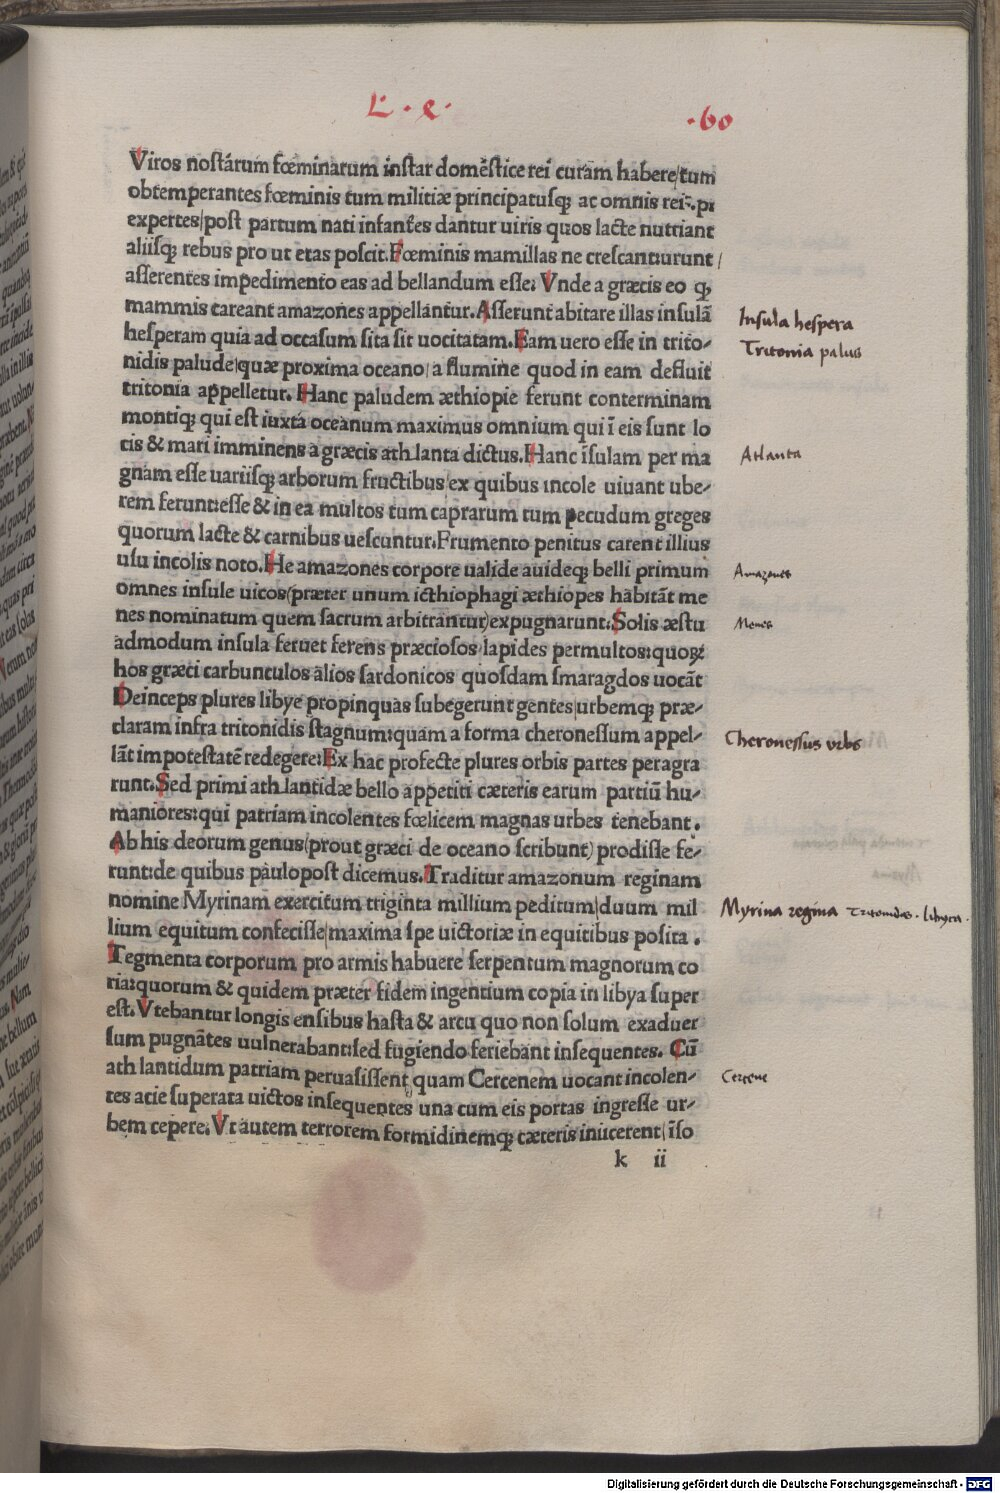 ·60
Viros nostárum fœminarum instar domêstice rei curam habere/tum
obtemperantes fœminis tum militiæ principatusq; ac omnis rei
expertes/post partum nati infantes dantur uiris quos lacte nutriant
aliisq; rebus pro ut etas poscit. Fœminis mamillas ne crescant:urunt/
asserentes impedimento eas ad bellandum esse. Vnde a græcis eo q;
mammis careant amazones appellantur. Asserunt abitare illas insulā
hesperam quia ad occasum sita sit uocitatam. Eam uero esse in trito-
nidis palude/quæ proxima oceano/a flumine quod in eam defluit
tritonia appelletur. Hanc paludem æthiopie ferunt conterminam
montiq; qui est iuxta oceanum maximus omnium qui ī eis sunt lo
cis & mari imminens a græcis ath lanta dictus. Hanc isulam per ma
gnam esse uariisq; arborum fructibus/ex quibus incole uiuant ube-
rem ferunt:esse & in ea multos tum caprarum tum pecudum greges
quorum lacte & carnibus uescuntur. Frumento penitus carent illius
usu incolis noto. He amazones corpore ualide auideq; belli primum
omnes insule uicos(præter unum icthiophagi æthiopes habitāt me
nes nominatum quem sacrum arbitrantur)expugnarunt. Solis æstu
admodum insula feruet ferens præciosos lapides permultos:quoꝝ
hos græci carbunculos ālios sardonicos quosdam smaragdos uocāt
Deinceps plures libye propinquas subegerunt gentes/urbemq; præ-
claram infra tritonidis stagnum:quam a forma cheronessum appel-
lāt in potestatē redegere: Ex hac profecte plures orbis partes peragra
runt. Sed primi ath lantidæ bello appetiti cæteris earum partiū hu-
maniores:qui patriam incolentes fœlicem magnas urbes tenebant.
Ab his deorum genus(prout græci de oceano scribunt) prodisse fe-
runt:de quibus paulopost dicemus. Traditur amazonum reginam
nomine Myrinam exercitum triginta millium peditum/duum mil
lium equitum confecisse/maxima spe uictoriæ in equitibus posita.
Tegmenta corporum pro armis habuere serpentum magnorum co
ria:quorum & quidem præter fidem ingentium copia in libya super
est. Vtebantur longis ensibus hasta & arcu quo non solum exaduer
sum pugnātes uulnerabant:sed fugiendo feriebant insequentes. Cū
ath lantidum patriam peruasissent quam Cercenem uocant incolen-
tes acie superata uictos insequentes una cum eis portas ingresse ur-
bem cepere. Vt autem terrorem formidinemq; cæteris iniicerent/ īso
k ii
Insula hespera
Tritonia palus
Atlanta
Amazones
Menes
Cheronessus urbs
Myrina regina
Cercene
Digitalisierung gefördert durch die Deutsche Forschungsgemeinschaft - DFG